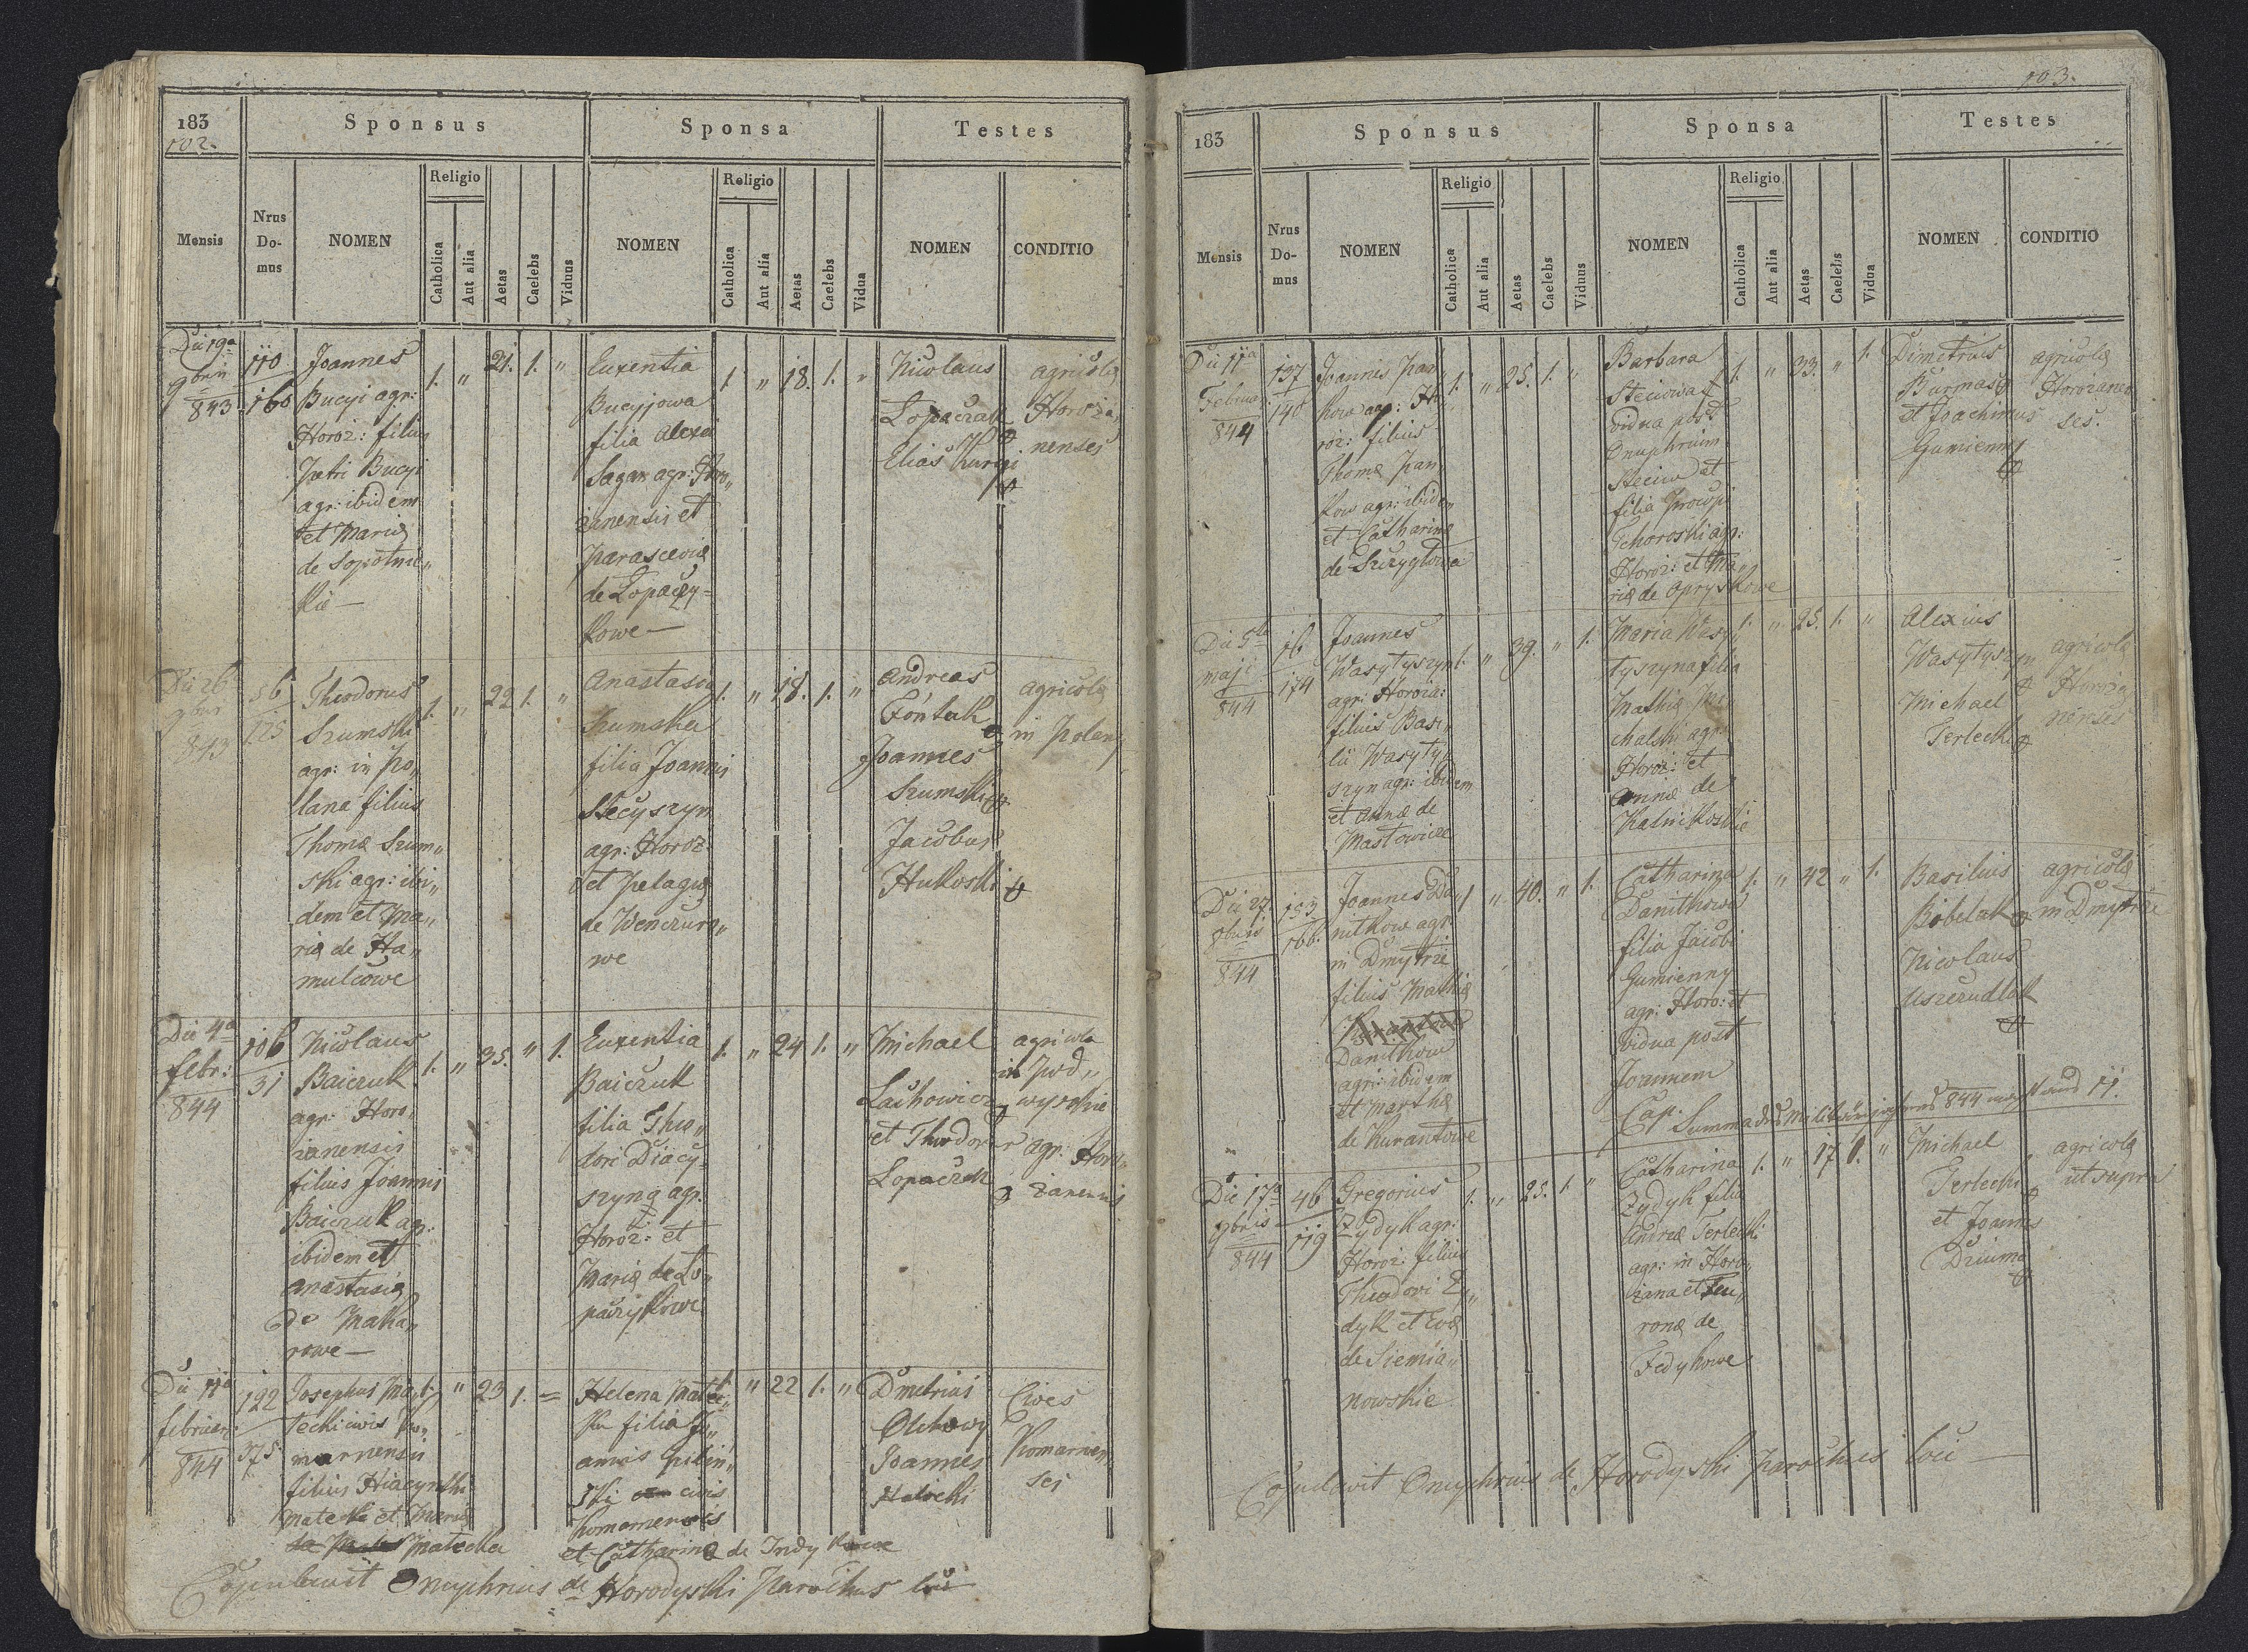 183
102.
Sponsus
Sponsa
Testes
Mensis
Nrus
Do-
mus
NOMEN
Religio
Catholica
Aut alia
Aetas
Caelebs
Viduus
NOMEN
Religio
Catholica
Aut alia
Aetas
Caelebs
Vidua
NOMEN
CONDITIO
Die 19a
9bris
843
110
160
Joannes
Bucyi agr:
Horoż: filius
Petri Bucyi
agr: ibidem
et Mariæ
de Sopotnic„
kie —
1. „ 21. 1. „
Euxentia
Bucyjowa
filia Alexii
Sagan agr: Horo„
żanensis et
Parasceviæ
de Łopaczy=
kowe —
1. „ 18. 1. „
Nicolaus
Łopaczak
Elias Kurczi
agricolæ
Horoża„
nenses
Die 26
9bris
843
56
125
Theodorus
Szumski
agr: in Po„
lana filius
Thomæ Szum„
ski agr: ibi„
dem et Ma„
riæ de Ha„
mulcowe
1. „ 22 1. „
Anastasia
Szumska
filia Joannis
Stecyszyn
agr: Horoż
et Pelagiæ
de Wenczuro„
we
1. „ 18. 1. „
Andreas
Fontak
Joannes
Szumski
Jacobus
Hukoski
agricolæ
in Polany
Die 4a
febr:
844
106
31
Nicolaus
Baiczuk
agr: Horo„
żanensis
filius Joannis
Baiczuk agr:
ibidem et
Anastasiæ
de Maka„
rowe —
1. „ 35. „ 1.
Euxentia
Baiczuk
filia Theo„
dori Diacy„
szyna agr.
Horoż: et
Mariæ de Ło„
paczykowe
1. „ 24 1. „
Michael
Lachowicz
et Theodor
Łopaczak
agricola
in Pod„
wysokie
agr: Horo„
żanensis
Die 11a
februar:
844
122
375
Josephus Ma„
tecki civis Ko„
marnensis
filius Hiacynthi
Matecki et Mariæ
Matecka
1. „ 23 1. =
Helena Matec„
ka filia Jo„
annis Pilin„
ski civis
Komarnensis
et Catharinæ de Indykowe
„ 22 1. „
Dmetrius
Olchowy
Joannes
Halecki
Cives
Komarnen„
ses
Copulavit Onuphrius de Horodyski Parochus loci
103.
183
Sponsus
Sponsa
Testes
Mensis
Nrus
Do-
mus
NOMEN
Religio
Catholica
Aut alia
Aetas
Caelebs
Viduus
NOMEN
Religio
Catholica
Aut alia
Aetas
Caelebs
Vidua
NOMEN
CONDITIO
Die 11a
Februa
844
137
140
Joannes Pań„
kow agr: Ho„
roż: filius
Thomæ Pań„
kow agr: ibidem
et Catharinæ
de Szczygłowa
1. „ 25. 1. „
Barbara
Steciowa
vidua post
Onuphrium
Steciw et
filia Procopi
Tchoroski agr:
Horoż: et Ma„
riæ de Opryskowe
1. „ 33. „ 1.
Dimetrius
Burmas
et Joachimus
Gumienny
agricolæ
Horożanen
ses.
Die 5ta
Maji
844
16
174
Joannes
Wasylyszyn
agr: Horoża:
filius Basi„
lii Wasyly„
szyn agr: ibidem
et Annæ de
Masłowicze
1. „ 39. „ 1.
Maria Wasy„
lyszyna filia
Mathiæ Mi„
chalski agr:
Horoż: et
Annæ de
Kalnikoskie
1. „ 25. 1. „
Alexius
Wasylyszyn
Michael
Terlecki
agricolæ
Horoża
nenses
Die 27
8bris
844
153
166.
Joannes Da„
nitkow agr.
in Dmytrże
filius Mathiæ
Danitkow
agr: ibidem
et Marthæ
de Kurantowe
1 „ 40. „ 1.
Catharina
Danitkowa
filia Jacobi
Gumienny
agr: Horo: et
vidua post
Joannem
Cap.
1. „ 42 „ 1.
Basilius
Bobelak
Nicolaus
Uszczudlak
agricolæ
in Dmytrże
Summa des Militärjahres 844 macht aus 11.
Die 17a
9bris
844
46
119
Gregorius
Zydyk agr:
Horoż: filius
Theodori Zy„
dyk et Evæ
de Siemia„
nowskie
1. „ 25. 1. „
Catharina
Zydyk filia
Andreæ Terlecki
agr: in Horo„
żana et Feu„
ronæ de
Fedykowe
1. „ 17 1. „
Michael
Terlecki
et Joannes
Dziuma
agricolæ
ut supra
Copulavit Onuphrius de Horodyski Parochus loci —